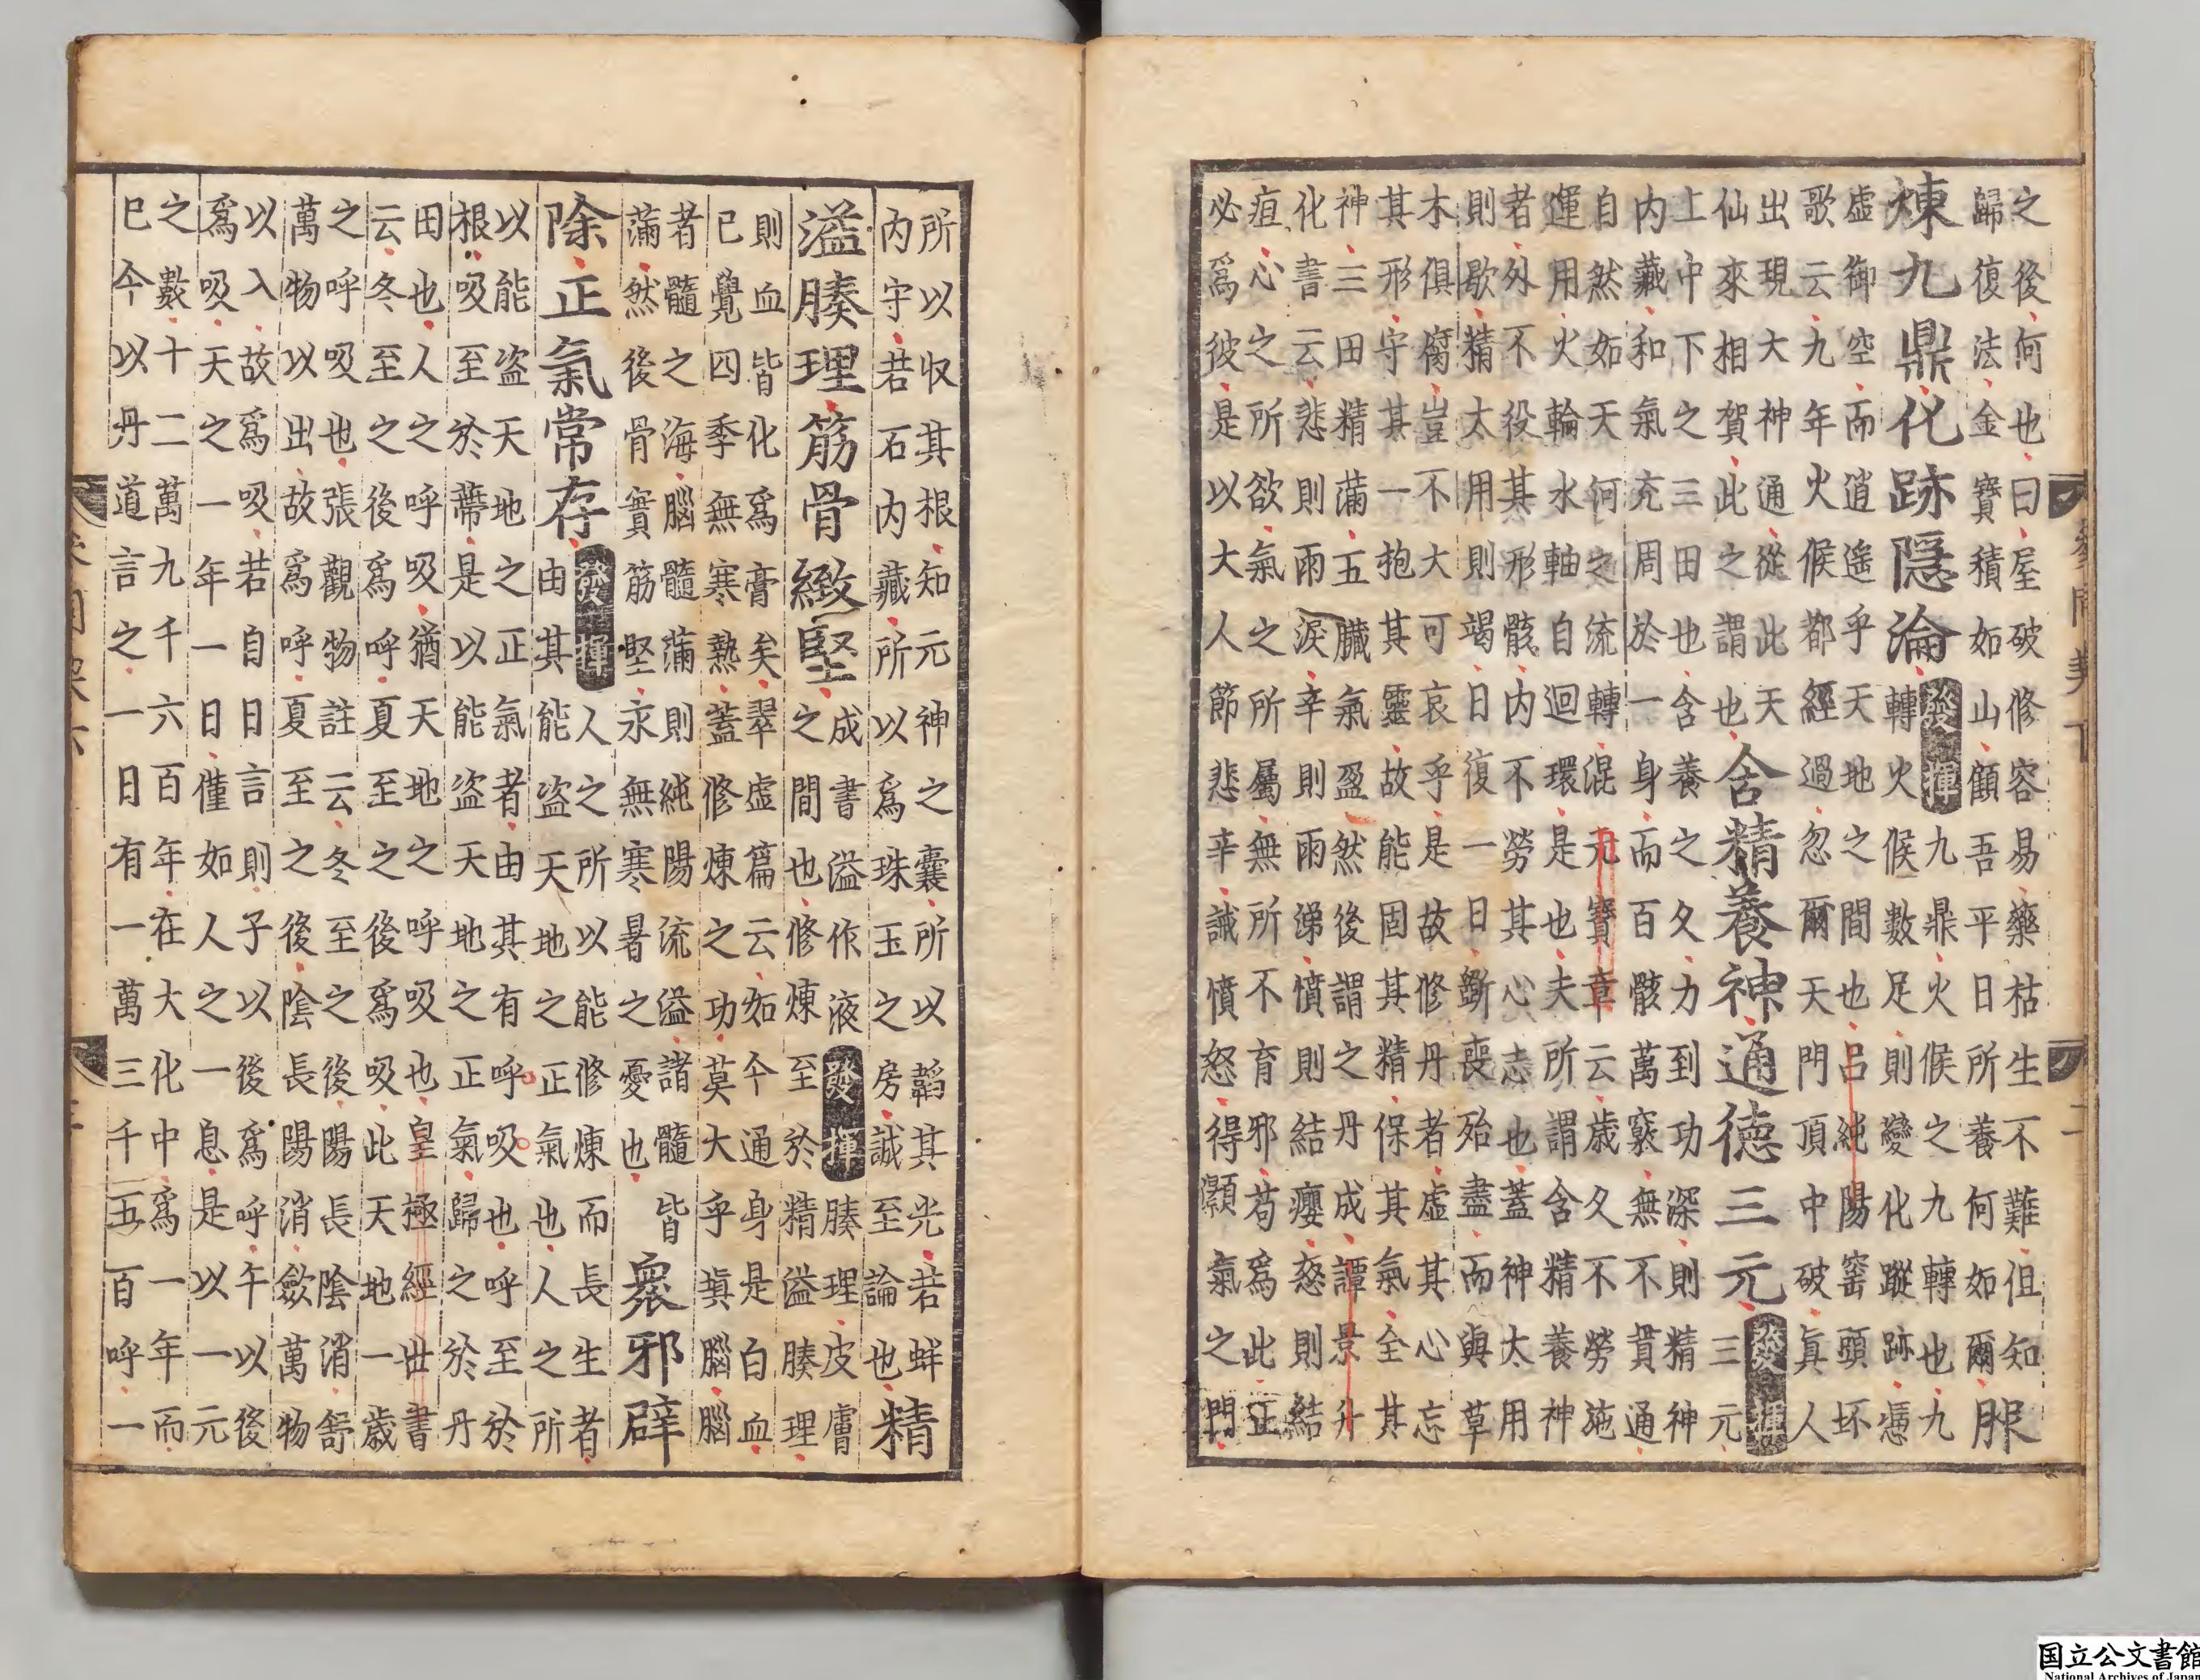 之後何也曰屋破修容易藥枯生不難但知
歸復法金寶積如山顧吾平日所養何如爾服
煉九鼎化跡隱淪發揮九鼎火候之九轉也九
轉火候數足則變化蹤跡憑
虛御空而逍遙乎天地之間也呂純陽窑頭坏
歌云九年火候都經過忽爾天門頂中破真人
出現大神通從此天
仙來相賀此之謂也含精養神通德三元發揮三元
上中下之三田也含養之久力到功深則精神
内藏和氣充周於一身而百骸萬竅無不貫通
自然如天何之流轉混元寶章所云歲久不勞施
運用火輪水軸自迴環是也夫所謂含精養神
者外不役其形骸内不勞其心志也蓋神太用
則歇精太用則竭日復一日斲喪殆盡而與草
木俱腐豈不大可哀乎是故修丹者虛其心忘
其形守其一抱其靈故能固其精保其氣全其
神三田精滿五臟氣盈然後謂之丹成譚景升
化書云悲則雨淚辛則雨涕憤則結癭怒則結
疽心之所欲氣之所屬無所不育邪苟爲此正
必爲彼是以大人節悲辛誡憤怒得灝氣之門
所以収其根知元神之囊所以韜其光若蚌
内守若石内藏所以爲珠玉之房誠至論也精
溢腠理筋骨緻堅成書溢作液發揮腠理皮膚
之間也修煉至於精溢腠理
則血皆化爲膏矣翠虛篇云如今通身是白血
已覺四季無寒熱蓋修煉之功莫大乎填腦腦
者髓之海腦髓滿則純陽流溢諸髓皆
滿然後骨實筋堅永無寒暑之憂也衆邪辟
除正氣常存發揮人之所以能修煉而長生者
由其能盜天地之正氣也人之所
以能盜天地之正氣者由其有呼吸也呼至於
根吸至於蔕是以能盜天地之正氣歸之於丹
田也人之呼吸猶天地之呼吸也皇極經世書
云冬至之後爲呼夏至之後爲吸此天地一歲
之呼吸也張觀物註云冬至之後陽長陰消舒
萬物以出故爲呼夏至之後陰長陽消斂萬物
以入故爲吸若自日言則子以後爲呼午以後
爲吸天之一年一日僅如人之一息是以一元
之數十二萬九千六百年在大化中爲一年而
已今以丹道言之一日有一萬三千五百呼一
国立公文書館
National Archives of Japan